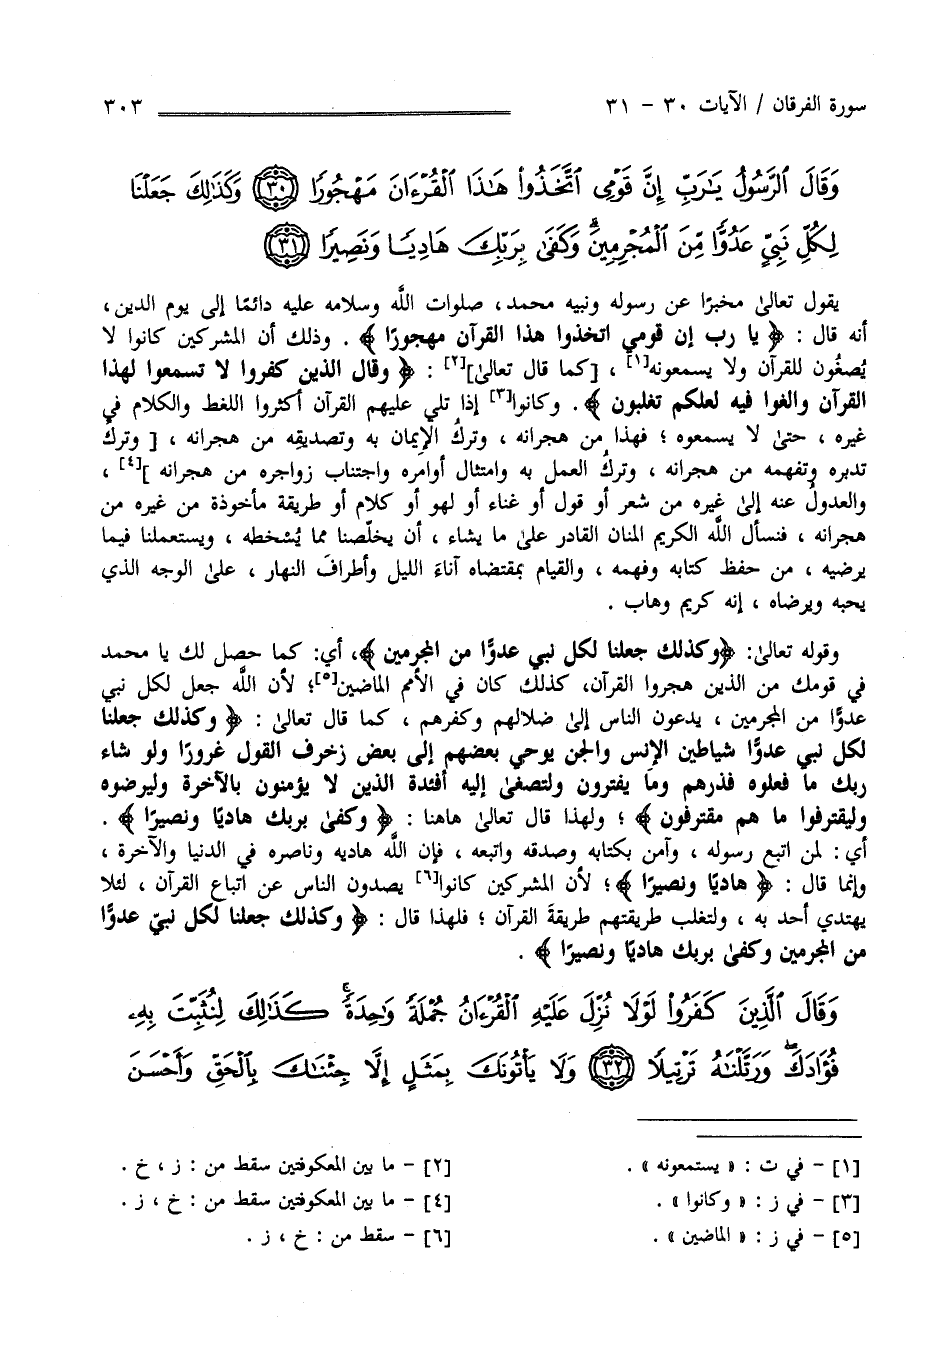 سورة الفرقان / الآيات ٣٠ - ٣١ ٣٠٣
وَقَالَ ٱلرَّسُولُ يَٰرَبِّ إِنَّ قَوْمِى ٱتَّخَذُوا۟ هَٰذَا ٱلْقُرْءَانَ مَهْجُورًا ﴿٣٠﴾ وَكَذَٰلِكَ جَعَلْنَا
لِكُلِّ نَبِيٍّ عَدُوًّا مِّنَ ٱلْمُجْرِمِينَ ۗ وَكَفَىٰ بِرَبِّكَ هَادِيًا وَنَصِيرًا ﴿٣١﴾
يقول تعالىٰ مخبرًا عن رسوله ونبيه محمد، صلوات اللَّه وسلامه عليه دائمًا إلى يوم الدين،
أنه قال : ﴿ يا رب إن قومي اتخذوا هذا القرآن مهجورًا ﴾ . وذلك أن المشركين كانوا لا
يُصغُون للقرآن ولا يسمعونه[١] ، [كما قال تعالىٰ][٢] : ﴿ وقال الذين كفروا لا تسمعوا لهذا
القرآن والغوا فيه لعلكم تغلبون ﴾ . وكانوا[٣] إذا تلي عليهم القرآن أكثروا اللغط والكلام في
غيره ، حتىٰ لا يسمعوه ؛ فهذا من هجرانه ، وتركُ الإيمان به وتصديقِه من هجرانه ، [ وتركُ
تدبره وتفهمه من هجرانه ، وتركُ العمل به وامتثال أوامره واجتناب زواجره من هجرانه ][٤] ،
والعدولُ عنه إلىٰ غيره من شعر أو قول أو غناء أو لهو أو كلام أو طريقة مأخوذة من غيره من
هجرانه ، فنسأل اللَّه الكريم المنان القادر علىٰ ما يشاء ، أن يخلّصنا مما يُسْخطه ، ويستعملنا فيما
يرضيه ، من حفظ كتابه وفهمه ، والقيام بمقتضاه آناءَ الليل وأطرافَ النهار ، علىٰ الوجه الذي
يحبه ويرضاه ، إنه كريم وهاب .
وقوله تعالىٰ: ﴿وكذلك جعلنا لكل نبي عدوًّا من المجرمين ﴾، أي: كما حصل لك يا محمد
في قومك من الذين هجروا القرآن، كذلك كان في الأمم الماضين[٥]؛ لأن اللَّه جعل لكل نبي
عدوًّا من المجرمين ، يدعون الناس إلىٰ ضلالهم وكفرهم ، كما قال تعالىٰ : ﴿ وكذلك جعلنا
لكل نبي عدوًّا شياطين الإنس والجن يوحي بعضهم إلى بعض زخرف القول غرورًا ولو شاء
ربك ما فعلوه فذرهم وما يفترون ولتصغىٰ إليه أفئدة الذين لا يؤمنون بالآخرة وليرضوه
وليقترفوا ما هم مقترفون ﴾ ؛ ولهذا قال تعالىٰ هاهنا : ﴿ وكفىٰ بربك هاديًا ونصيرًا ﴾ .
أي : لمن اتبع رسوله ، وآمن بكتابه وصدقه واتبعه ، فإن اللَّه هاديه وناصره في الدنيا والآخرة ،
وإنما قال : ﴿ هاديًا ونصيرًا ﴾؛ لأن المشركين كانوا[٦] يصدون الناس عن اتباع القرآن ، لئلا
يهتدي أحد به ، ولتغلب طريقتهم طريقةَ القرآن ؛ فلهذا قال : ﴿ وكذلك جعلنا لكل نبيّ عدوًّا
من المجرمين وكفىٰ بربك هاديًا ونصيرًا ﴾ .
وَقَالَ ٱلَّذِينَ كَفَرُوا۟ لَوْلَا نُزِّلَ عَلَيْهِ ٱلْقُرْءَانُ جُمْلَةً وَٰحِدَةً ۚ كَذَٰلِكَ لِنُثَبِّتَ بِهِۦ
فُؤَادَكَ ۖ وَرَتَّلْنَٰهُ تَرْتِيلًا ﴿٣٢﴾ وَلَا يَأْتُونَكَ بِمَثَلٍ إِلَّا جِئْنَٰكَ بِٱلْحَقِّ وَأَحْسَنَ
[١] - في ت : « يستمعونه » . [٢] - ما بين المعكوفتين سقط من : ز ، خ .
[٣] - في ز : « وكانوا » . [٤] - ما بين المعكوفتين سقط من : خ ، ز .
[٥] - في ز : « الماضين » . [٦] - سقط من : خ ، ز .